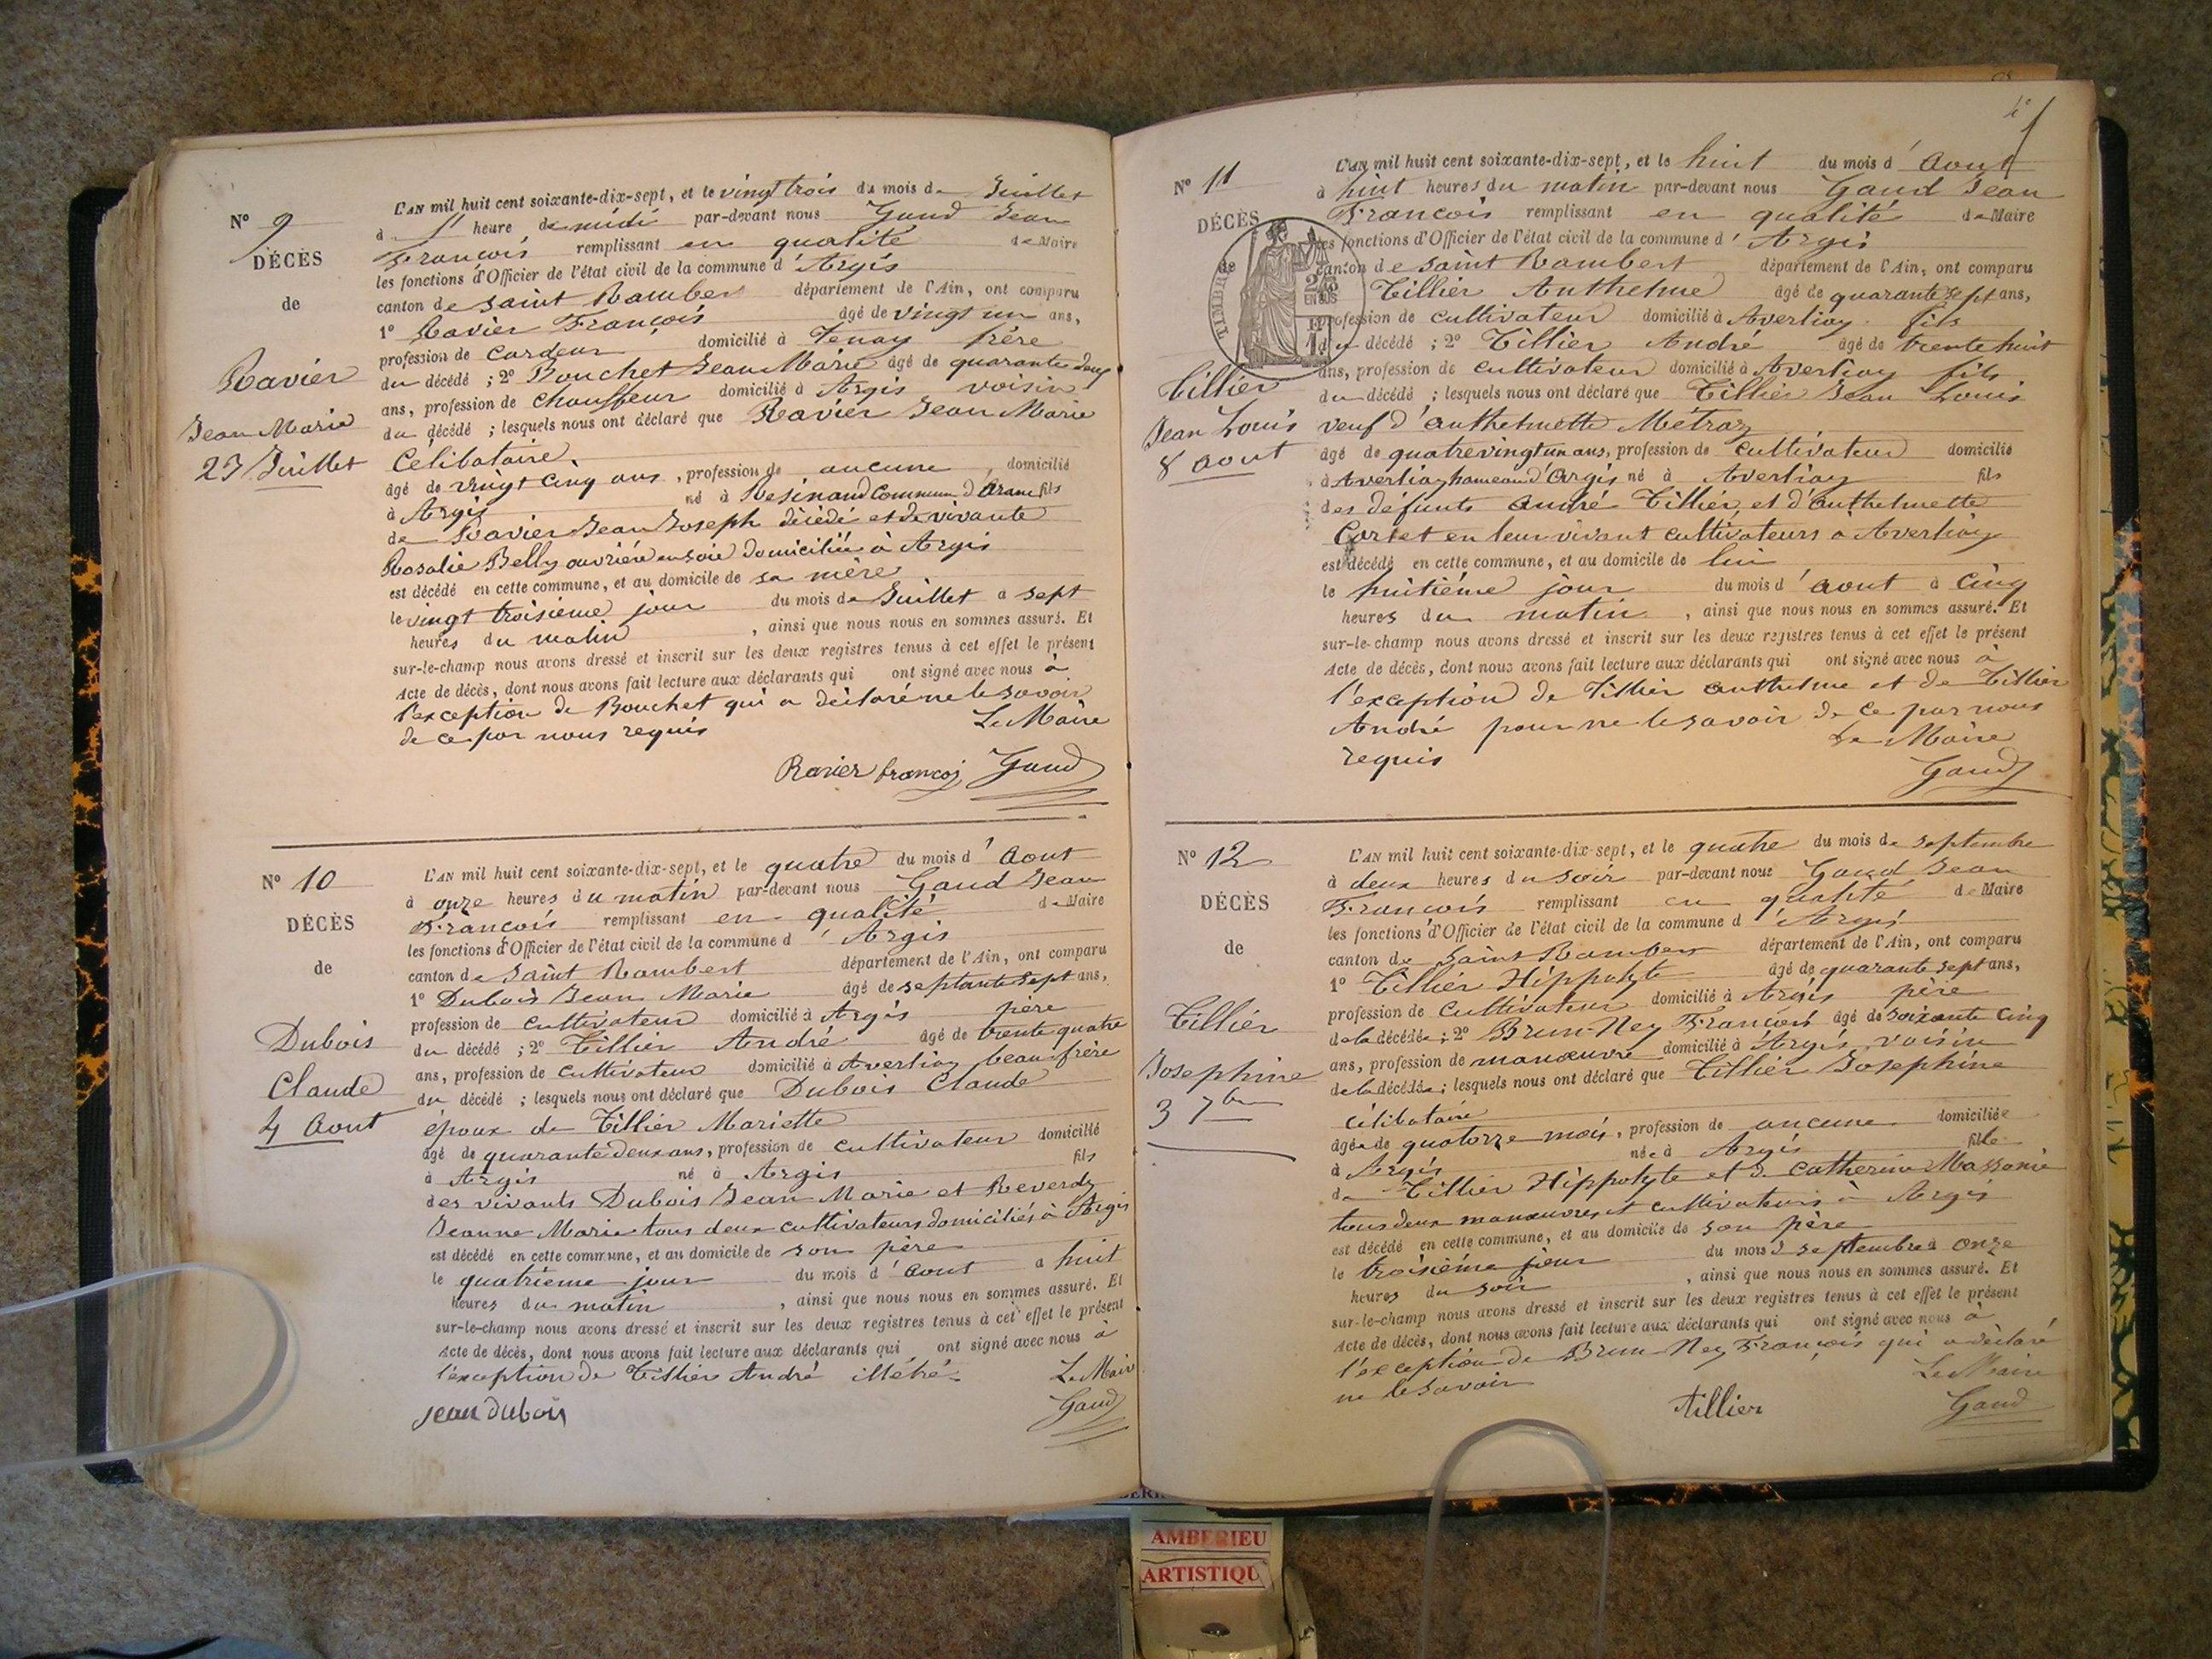 N° 9
DÉCÈS
de
Ravier
Jean Marie
23 Juillet
L'AN mil huit cent soixante-dix-sept, et le vingt trois du mois de Juillet
à 1 heure de midi par-devant nous Gaud Jean
François remplissant en qualité de Maire
les fonctions d'Officier de l'état civil de la commune d'Argis
canton de Saint Rambert département de l'Ain, ont comparu
1° Ravier François âgé de vingt un ans,
profession de Cardeur domicilié à Tenay frère
du décédé ; 2° Bouchet Jean Marie âgé de quarante deux
ans, profession de chauffeur domicilié à Argis voisin
du décédé ; lesquels nous ont déclaré que Ravier Jean Marie
Célibataire
âgé de vingt cinq ans, profession de aucune, domicilié
à Argis né à Resinand Commune d'Aranc fils
de Ravier Jean Joseph décédé et de vivante
Rosalie Belly ouvrière en soie domiciliée à Argis
est décédé en cette commune, et au domicile de sa mère
le vingt troisième jour du mois de Juillet à sept
heures du matin, ainsi que nous nous en sommes assuré. Et
sur-le-champ nous avons dressé et inscrit sur les deux registres tenus à cet effet le présent
Acte de décès, dont nous avons fait lecture aux déclarants qui ont signé avec nous à
l'exception de Bouchet qui a déclaré ne le savoir
de ce par nous requis Le Maire
Ravier francois Gaud
N° 10
DÉCÈS
de
Dubois
Claude
4 Aout
L'AN mil huit cent soixante-dix-sept, et le quatre du mois d'Aout
à onze heures du matin par-devant nous Gaud Jean
François remplissant en qualité de Maire
les fonctions d'Officier de l'état civil de la commune d'Argis
canton de Saint Rambert département de l'Ain, ont comparu
1° Dubois Jean Marie âgé de septante sept ans,
profession de cultivateur domicilié à Argis père
du décédé ; 2° Tillier André âgé de trente quatre
ans, profession de cultivateur domicilié à Averliaz beau frère
du décédé ; lesquels nous ont déclaré que Dubois Claude
époux de Tillier Mariette
âgé de quarante deux ans, profession de cultivateur domicilié
à Argis né à Argis fils
des vivants Dubois Jean Marie et Reverdy
Jeanne Marie tous deux cultivateurs domiciliés à Argis
est décédé en cette commune, et au domicile de son père
le quatrième jour du mois d'Aout à huit
heures du matin, ainsi que nous nous en sommes assuré. Et
sur-le-champ nous avons dressé et inscrit sur les deux registres tenus à cet effet le présent
Acte de décès, dont nous avons fait lecture aux déclarants qui ont signé avec nous à
l'exception de Tillier André illétré Le Maire
jean dubois Gaud
N° 11
DÉCÈS
de
TIMBRE
EN SUS
Tillier
Jean Louis
8 aout
L'AN mil huit cent soixante-dix-sept, et le huit du mois d'Aout
à huit heures du matin par-devant nous Gaud Jean
François remplissant en qualité de Maire
les fonctions d'Officier de l'état civil de la commune d'Argis
canton de Saint Rambert département de l'Ain, ont comparu
Tillier Anthelme âgé de quarante sept ans,
profession de cultivateur domicilié à Averliaz fils
du décédé ; 2° Tillier André âgé de trente huit
ans, profession de cultivateur domicilié à Averliaz fils
du décédé ; lesquels nous ont déclaré que Tillier Jean Louis
veuf d'Anthelmette Métraz
âgé de quatre vingt un ans, profession de cultivateur domicilié
à Averliaz hameau d'Argis né à Averliaz fils
des défunts André Tillier et d'Anthelmette
Cortet en leur vivant cultivateurs à Averliaz
est décédé en cette commune, et au domicile de lui
le huitième jour du mois d'Aout à Cinq
heures du matin, ainsi que nous nous en sommes assuré. Et
sur-le-champ nous avons dressé et inscrit sur les deux registres tenus à cet effet le présent
Acte de décès, dont nous avons fait lecture aux déclarants qui ont signé avec nous à
l'exception de Tillier Anthelme et de Tillier
André pour ne le savoir de ce par nous
requis Le Maire
Gaud
N° 12
DÉCÈS
de
Tillier
Josephine
3 7bre
L'AN mil huit cent soixante-dix-sept, et le quatre du mois de septembre
à deux heures du soir par-devant nous Gaud Jean
François remplissant en qualité de Maire
les fonctions d'Officier de l'état civil de la commune d'Argis
canton de Saint Rambert département de l'Ain, ont comparu
1° Tillier Hippolyte âgé de quarante sept ans,
profession de Cultivateur domicilié à Argis père
de la décédée ; 2° Brun-Ney François âgé de soixante cinq
ans, profession de manœuvre domicilié à Argis voisin
de la décédée ; lesquels nous ont déclaré que Tillier Josephine
célibataire
âgée de quatorze mois, profession de aucune domiciliée
à Argis née à Argis fille
de Tillier Hippolyte et de Catherine Massonie
tous deux manœuvres et cultivateurs à Argis
est décédé en cette commune, et au domicile de son père
le troisième jour du mois de septembre à onze
heures du soir, ainsi que nous nous en sommes assuré. Et
sur-le-champ nous avons dressé et inscrit sur les deux registres tenus à cet effet le présent
Acte de décès, dont nous avons fait lecture aux déclarants qui ont signé avec nous à
l'exception de Brun-Ney François qui a déclaré
ne le savoir Le Maire
Tillier Gaud
AMBERIEU
ARTISTIQU